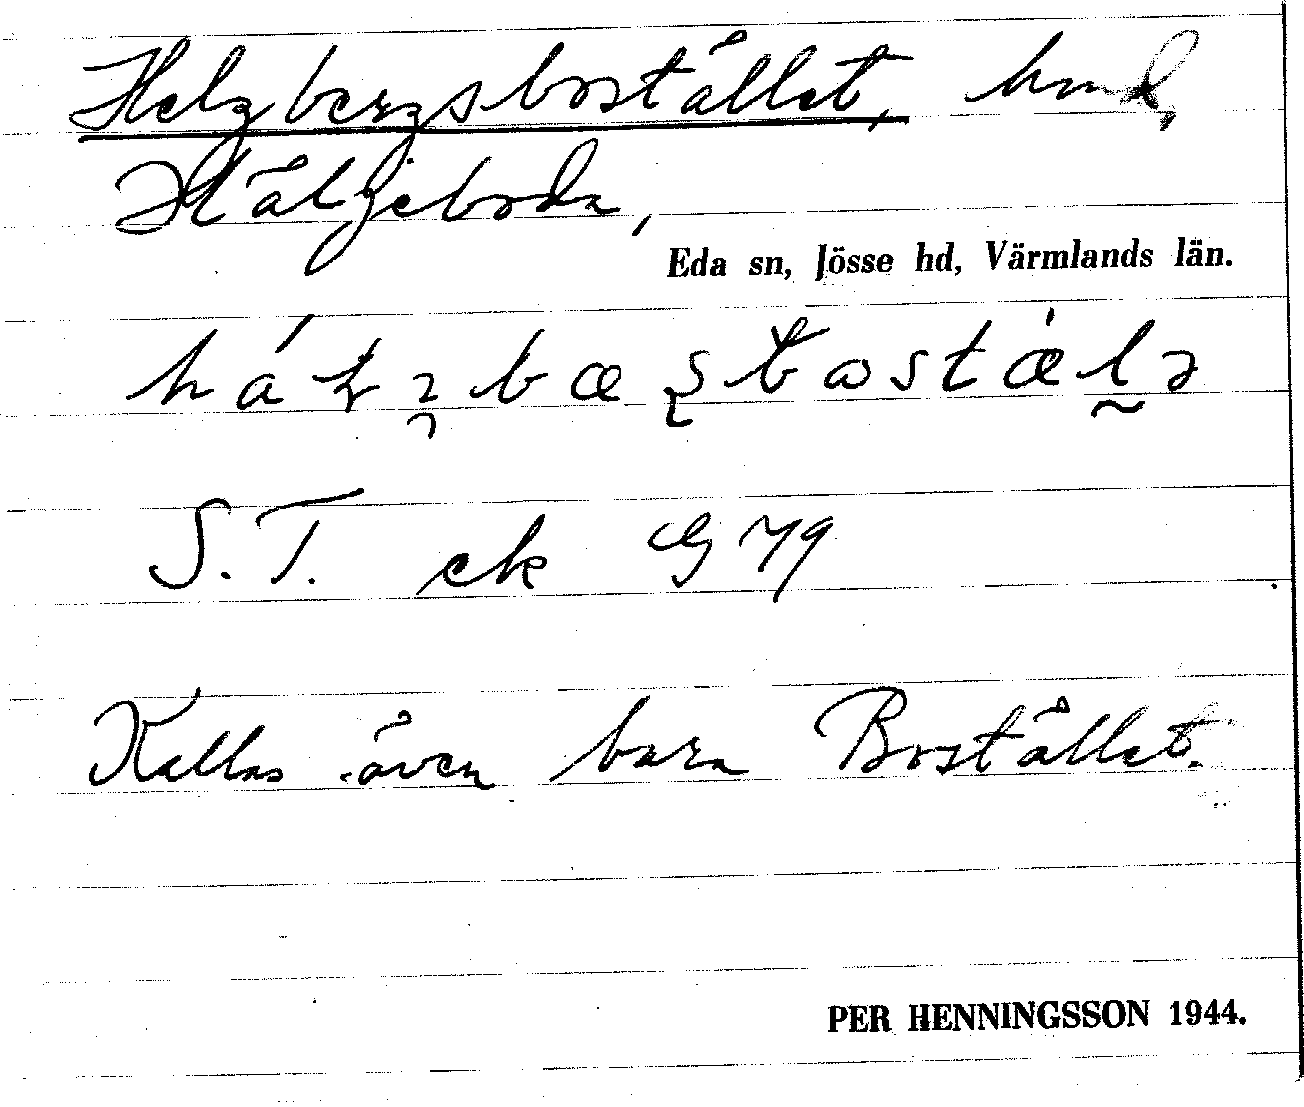 Helgbergsbostället, hmd,
Häljeboda,
Eda sn, Jösse hd, Värmlands län.
S. T. ek
Kallas även bara Bostället.
PER HENNINGSSON 1944.